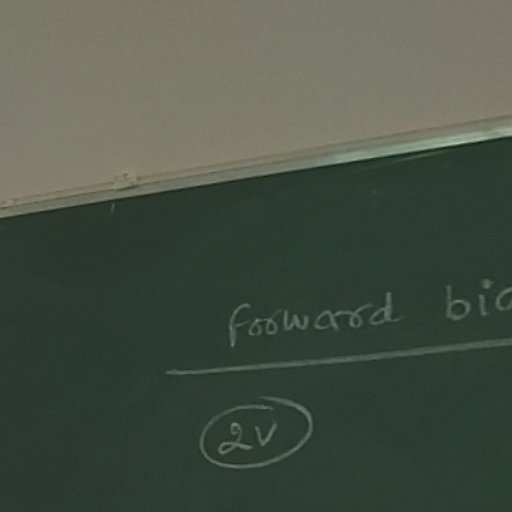 forward bia
2V